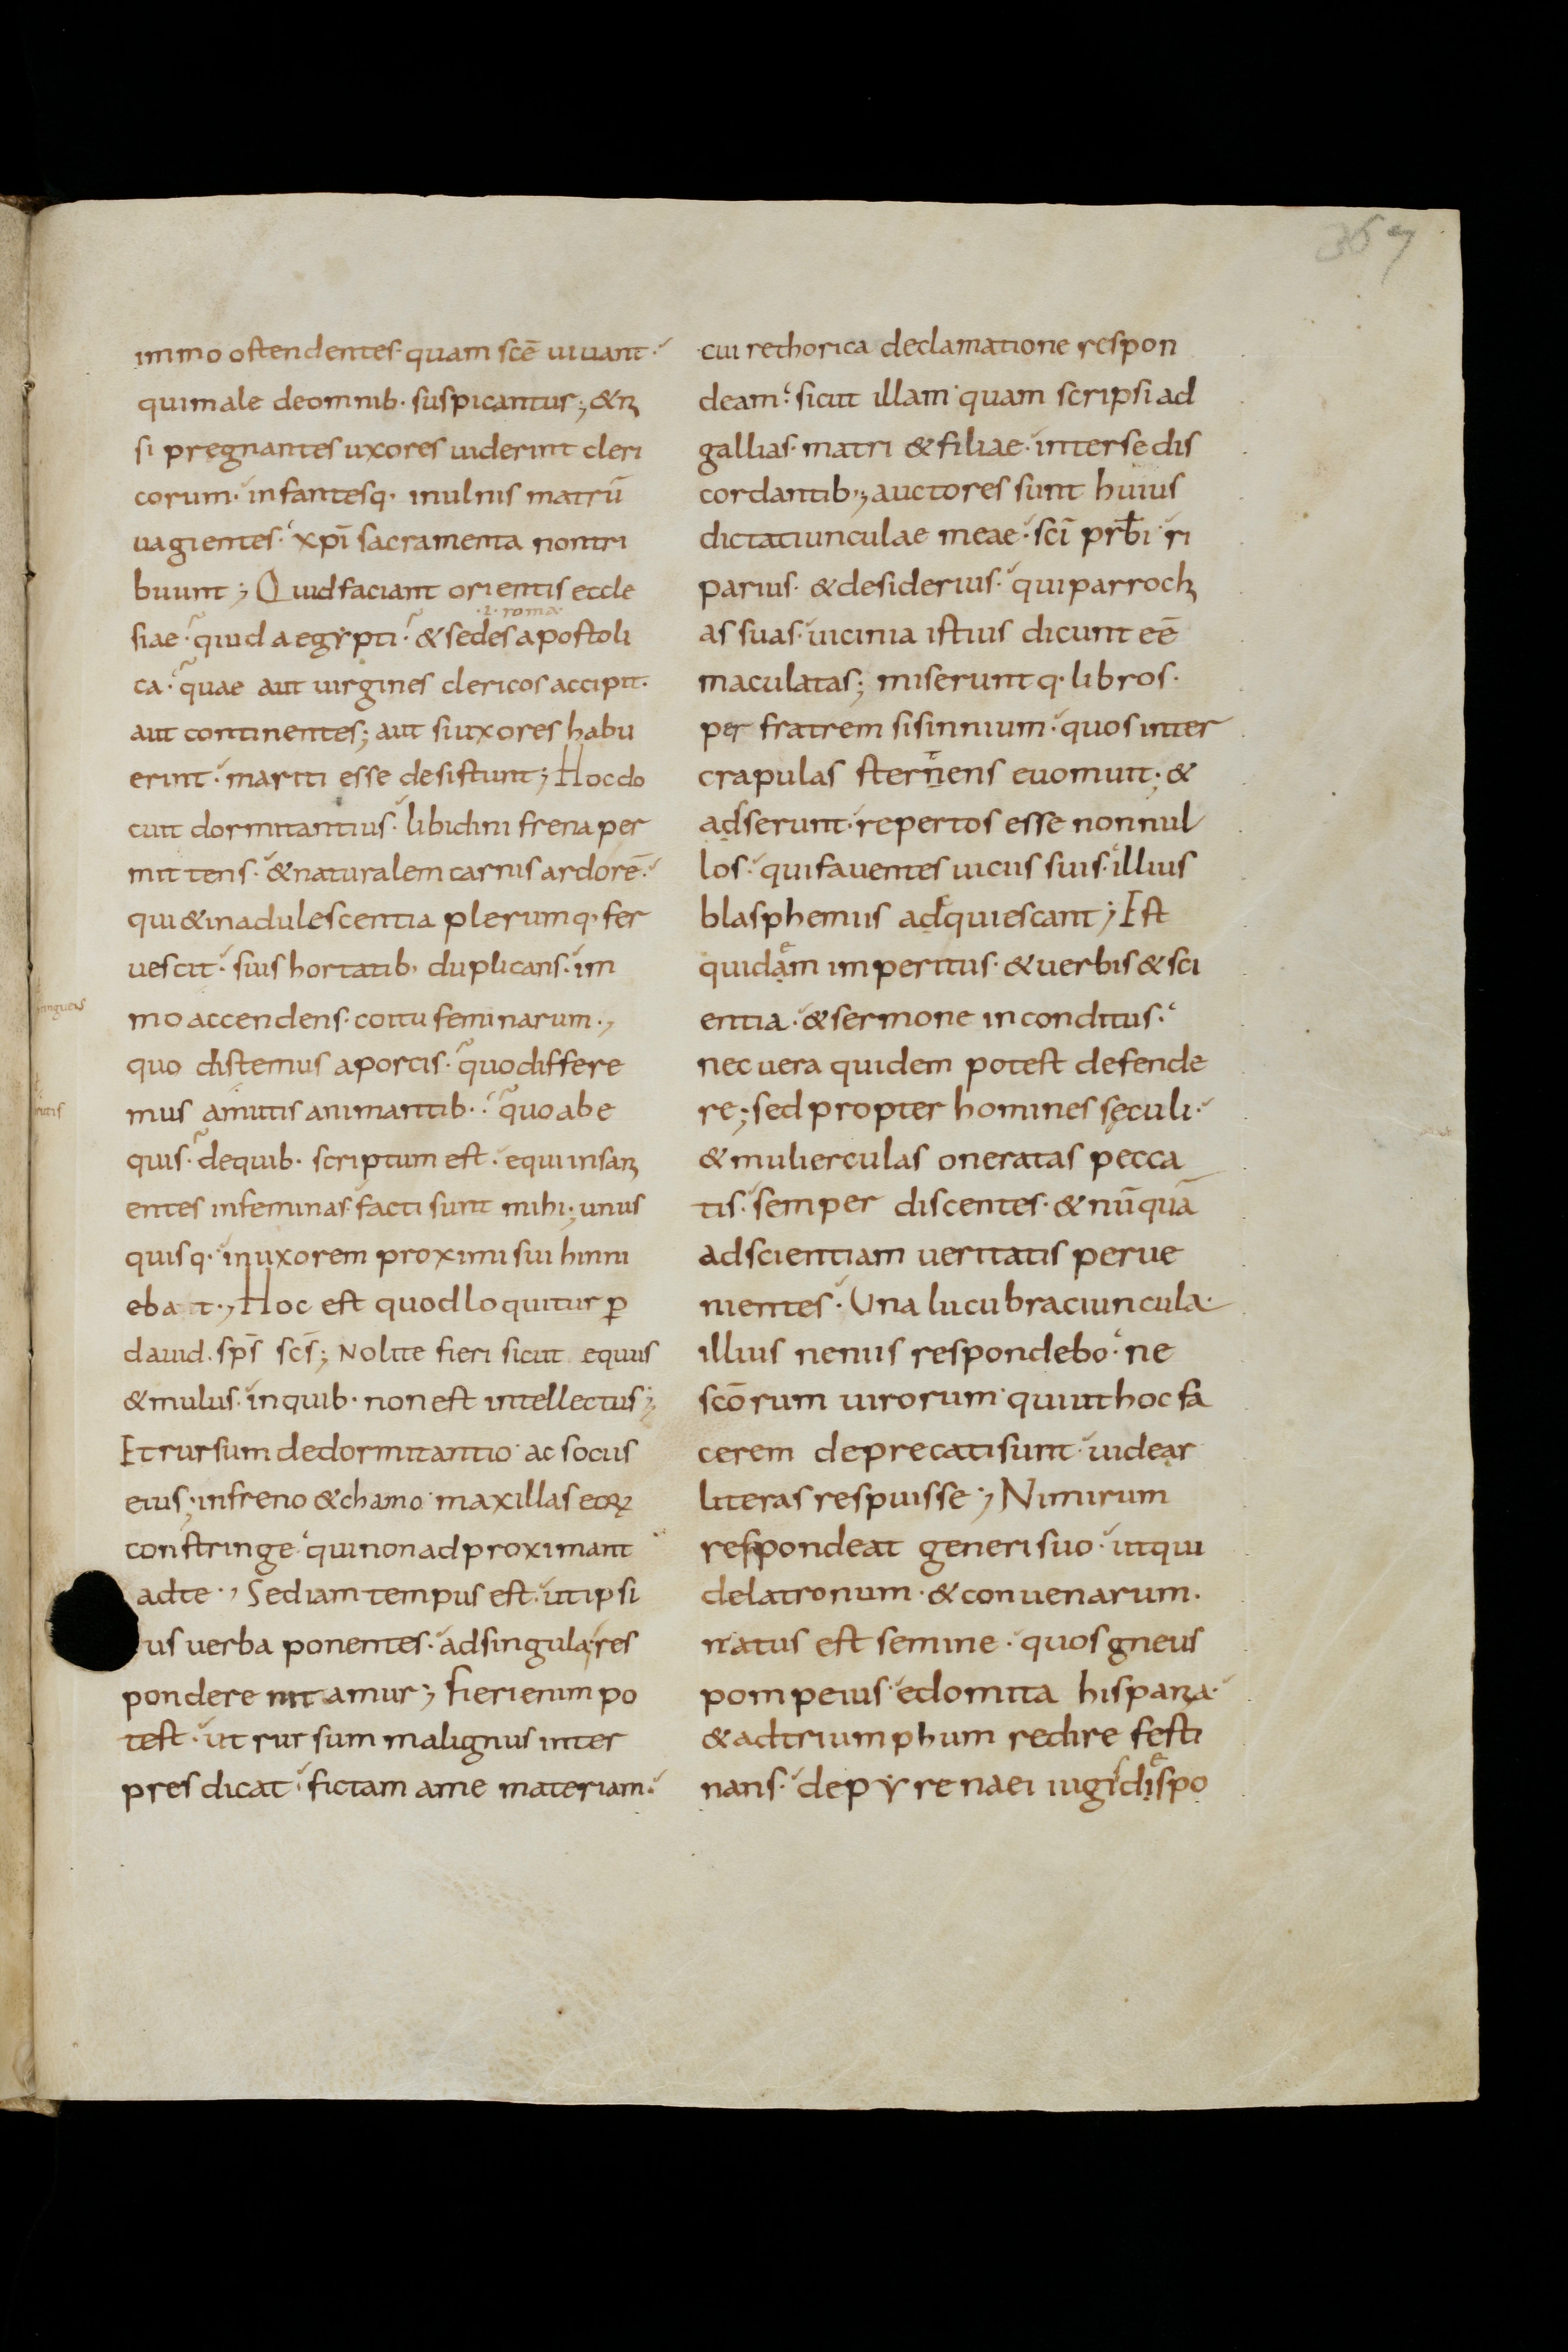 357
immo ostendentes· quam scē uiuant·
qui male de omnib· suspicantur; & ni
si pregnantes uxores uiderint cleri
corum· infantesq· in ulnis matrū
uagientes· xpī sacramenta non tri
buunt; Quid faciant orientis eccle
·i· roma
siae· quid aegypti· & sedes apostoli
ca· quae aut uirgines clericos accipit·
aut continentes; aut si uxores habu
erint· mariti esse desistunt; Hoc do
cuit dormitantius· libidini frena per
mittens· & naturalem carnis ardorē·
qui & in adulescentia plerumq· fer
uescit· suis hortatib· duplicans· im
mo accendens· coitu feminarum·,
quo distemus a porcis· quo differe
mus a mutis animantib·· quo ab e
quis· de quib· scriptum est· equi insani
entes in feminas facti sunt mihi; unus
quisq· in uxorem proximi sui hinni
eba t·, Hoc est quod loquitur p̄
dauid· sp̄s sc̄s; Nolite fieri sicut equus
& mulus· in quib· non est intellectus;
Et rursum de dormitantio· ac sociis
eius; in freno & chamo· maxillas eorꝝ
constringe· qui non adproximant
ad te·, Sed iam tempus est· ut ipsi
us uerba ponentes· ad singula res
pondere nitamur; Fieri enim po
test· ut rursum malignus inter
pres dicat· fictam a me materiam·
cui rethorica declamatione respon
deam· sicut illam· quam scripsi ad
gallias· matri & filiae· inter se dis
cordantib·; auctores sunt huius
dictatiunculae meae· scī prb̄i· ri
parius· & desiderius· qui parrochi
as suas· uicinia istius dicunt eē
maculatas; miseruntq· libros·
per fratrem sisinnium· quos inter
crapulas sternens euomuit; &
adserunt· repertos esse nonnul
los· qui fauentes uiciis suis· illius
blasphemiis adquiescant; Est
quidam imperitus· & uerbis & sci
entia· & sermone inconditus·
nec uera quidem potest defende
re; sed propter homines sęculi·
& mulierculas oneratas pecca
tis· semper discentes· & nūquā
ad scientiam ueritatis perue
nientes· Una lucubraciuncula·
illius neniis respondebo· ne
scōrum uirorum· qui ut hoc fa
cerem deprecati sunt· uidear
literas respuisse·, Nimirum
respondeat generi suo· ut qui
de latronum· & conuenarum·
natus est semine· quos gneus
pompeius· edomita hispania·
& ad triumphum redire festi
nans· de pyrenaei iugis dispo